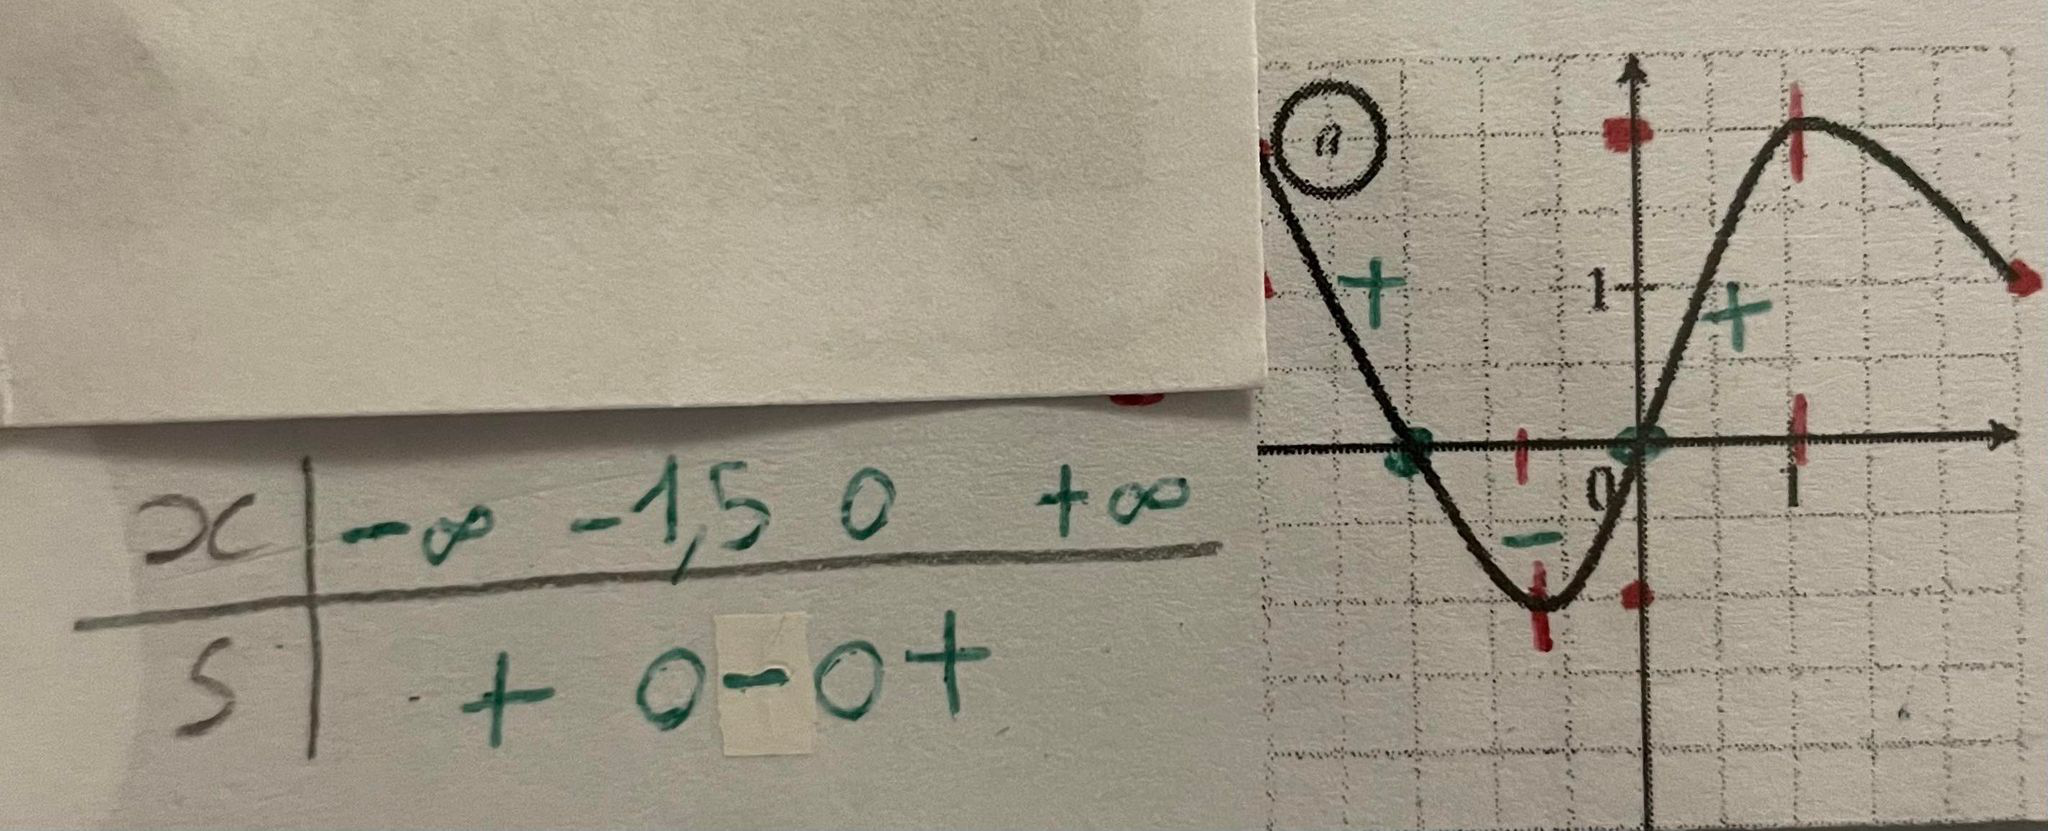 x -∞ -1,5 0 +∞
S + 0 - 0 +
a
+
1
+
0
1
-